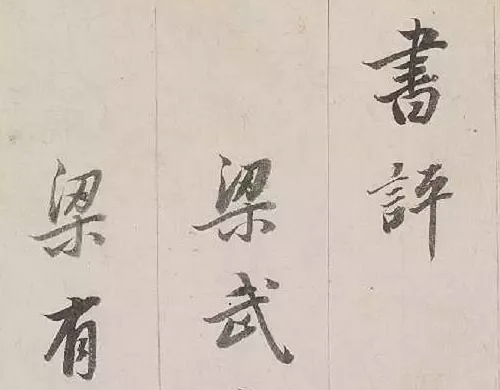 書評
梁武
梁有